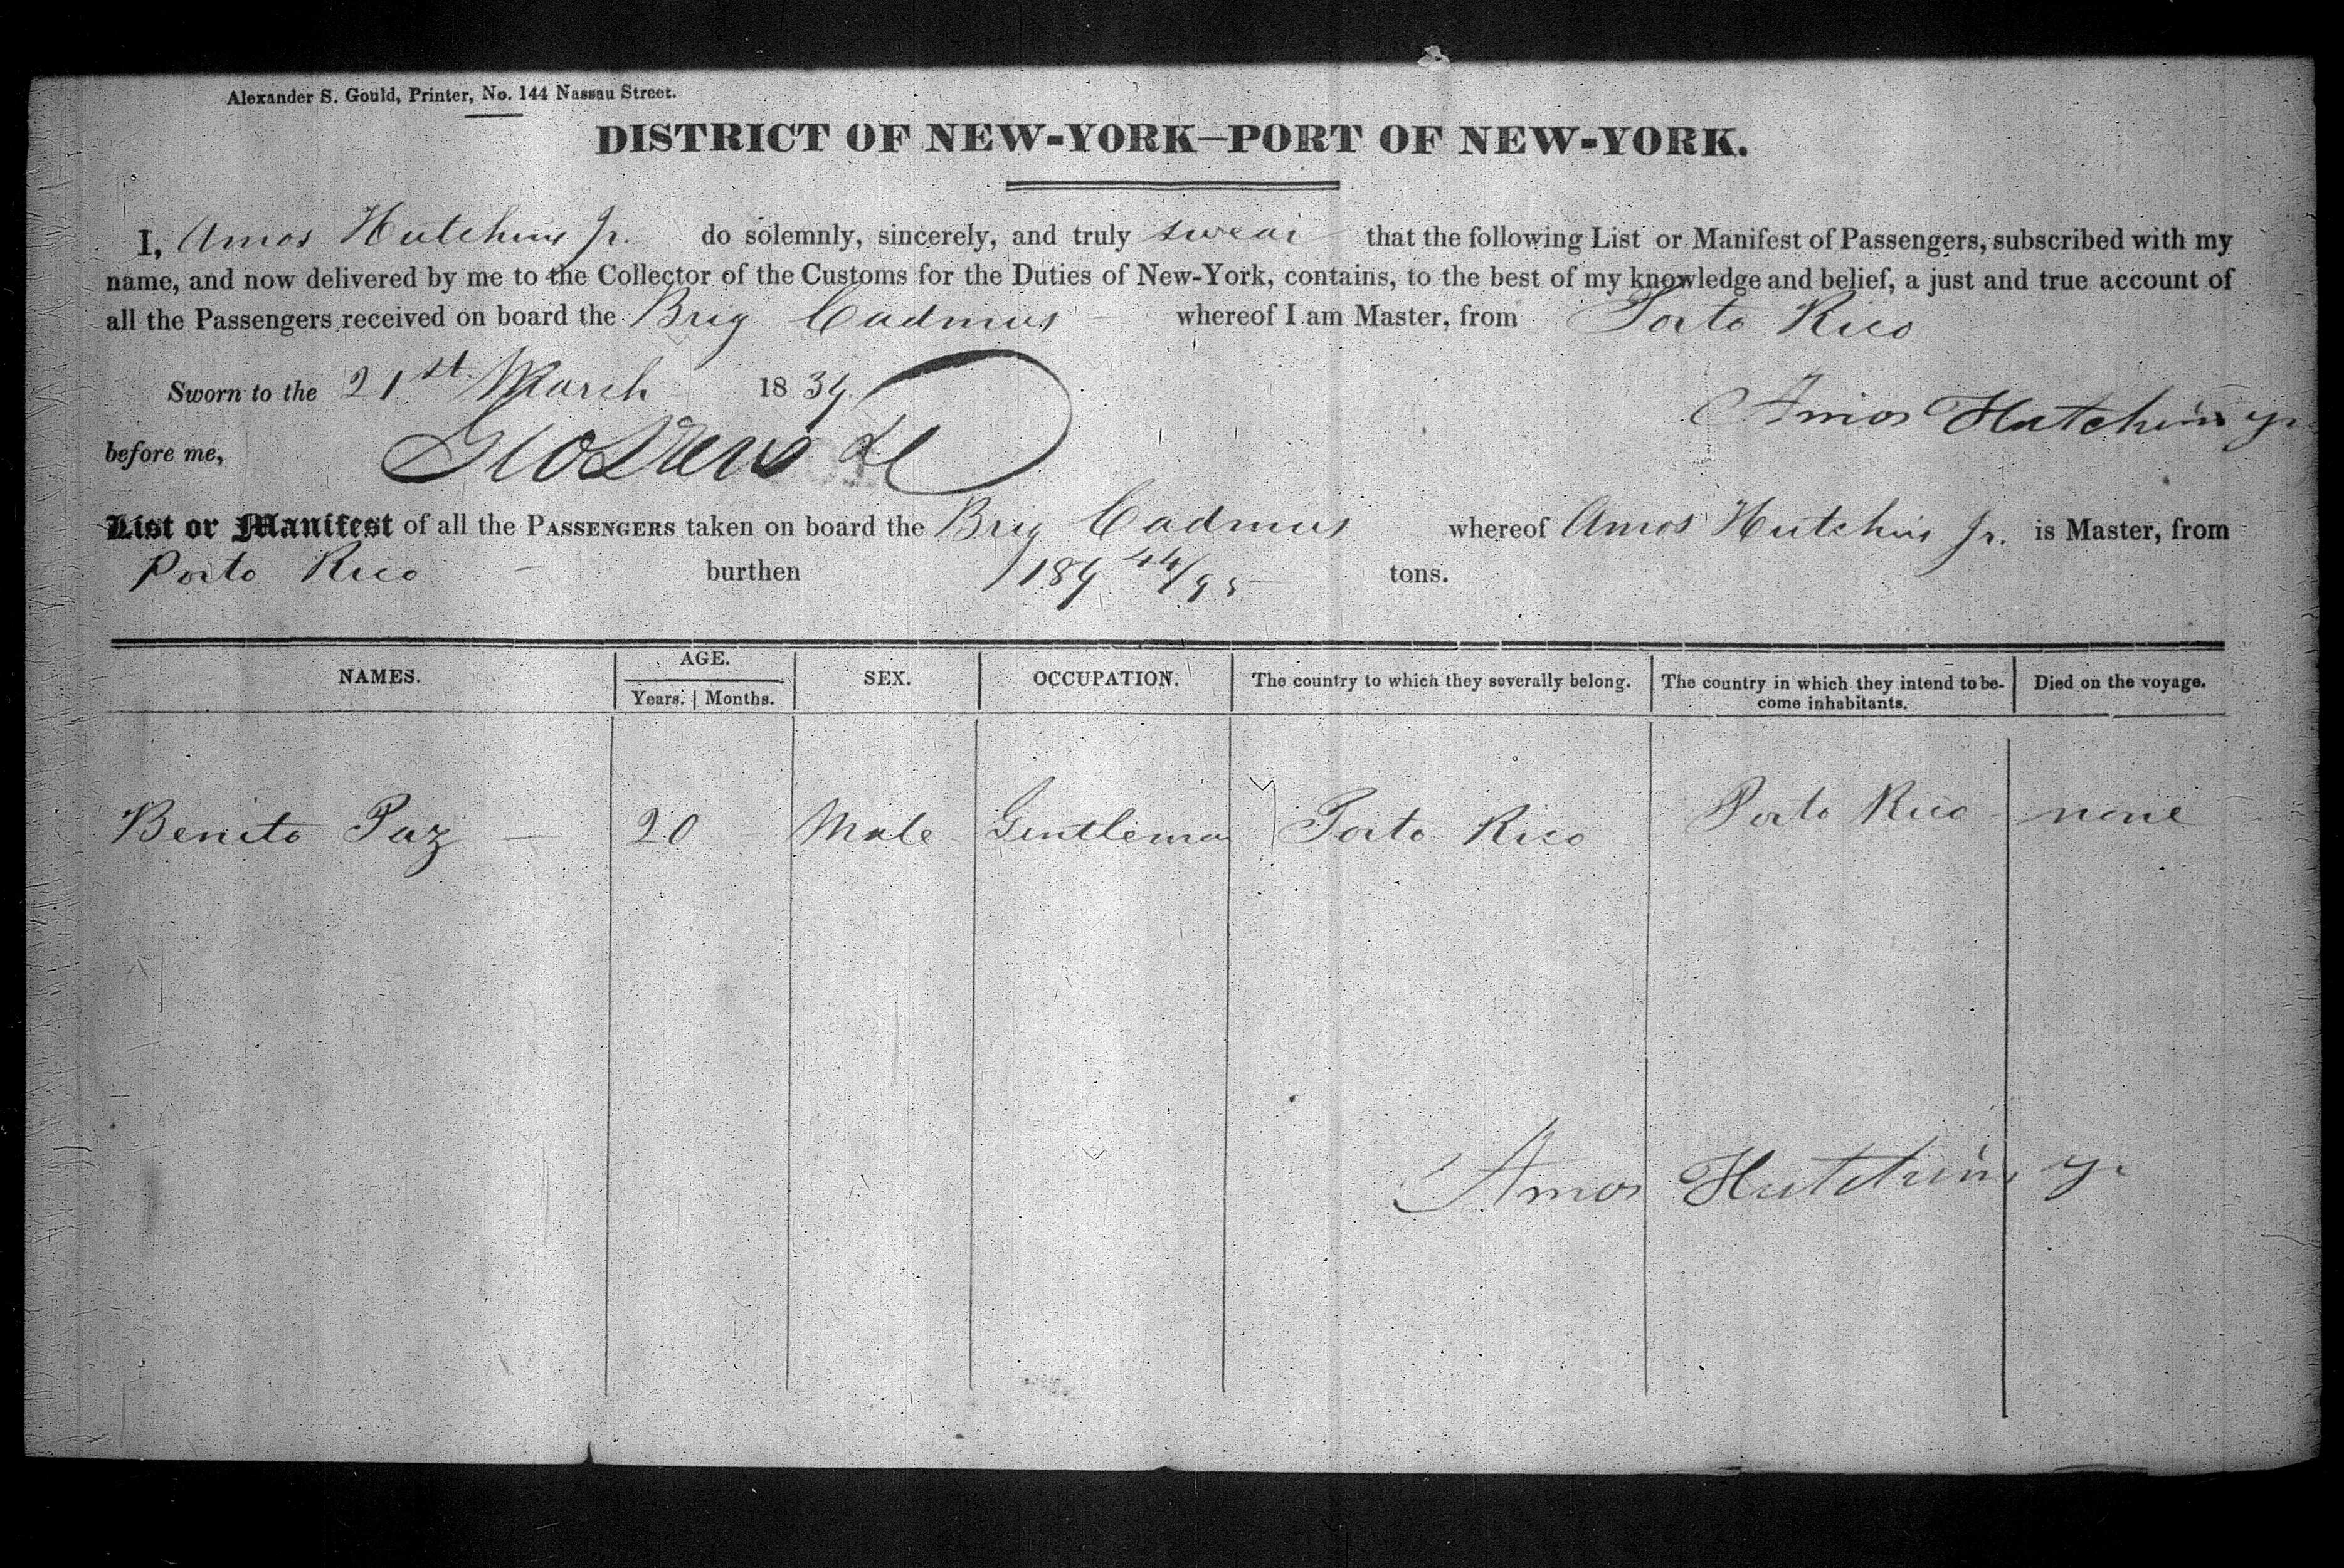 Alexander S. Gould, Printer, No. 144 Nassau Street.
DISTRICT OF NEW-YORK—PORT OF NEW-YORK.
I, Amos Hutchins Jr. do solemnly, sincerely, and truly swear that the following List or Manifest of Passengers, subscribed with my
name, and now delivered by me to the Collector of the Customs for the Duties of New-York, contains, to the best of my knowledge and belief, a just and true account of
all the Passengers received on board the Brig Cadmus whereof I am Master, from Porto Rico
Sworn to the 21st March 1839
Amos Hutchins Jr
before me,
List or Manifest of all the PASSENGERS taken on board the Brig Cadmus whereof Amos Hutchins Jr. is Master, from
Porto Rico burthen 189 44/95 tons.
NAMES. AGE. SEX. OCCUPATION. The country to which they severally belong. The country in which they intend to be- Died on the voyage.
Years. Months. come inhabitants.
Benito Paz 20 Male Gentleman Porto Rico Porto Rico none
Amos Hutchins Jr